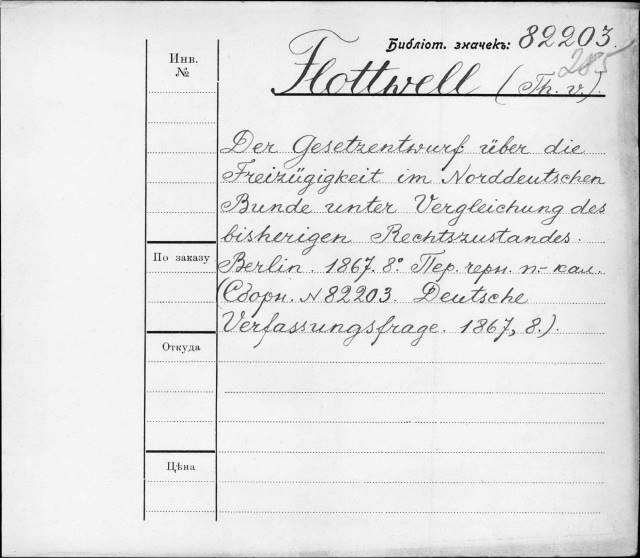 Библіот. значекъ: 82203.
285
Flottwell (Th. v.).
Инв.
№
Der Gesetzentwurf über die
Freizügigkeit im Norddeutschen
Bunde unter Vergleichung des
bisherigen Rechtszustandes.
Berlin. 1867. 8º. Пер. черн. п-кал.
(Сборн. N 82203. Deutsche
Verfassungsfrage. 1867, 8.).
По заказу
Откуда
Цѣна